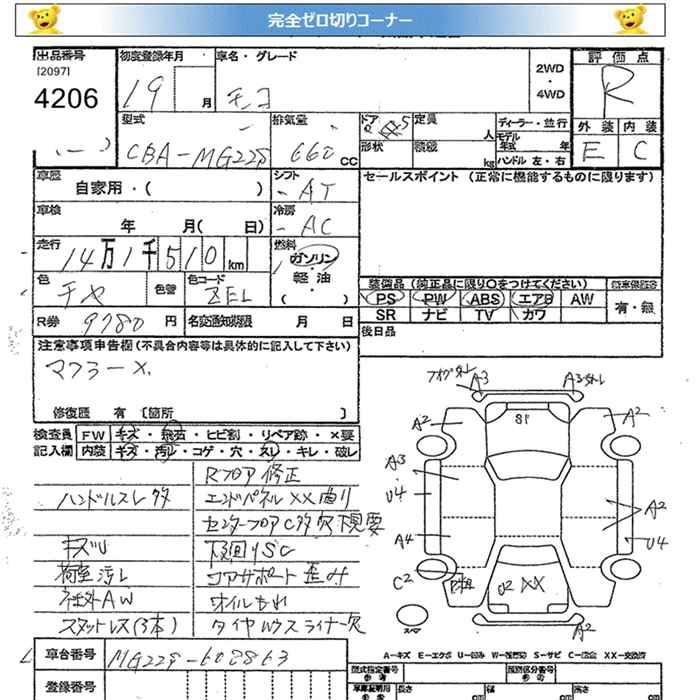 完全ゼロ切りコーナー
出品番号 初度登録年月 車名・グレード 2WD ・ 4WD 評価点
[2097]
4206 19 月 モコ R
型式 排気量 ドア 定員 人 ディーラー・並行 外装 内装
CBA-MG22S 660 CC 5 形状 積載 kg モデル年式 年 ハンドル 左・右 E C
車歴 自家用・( ) シフト AT セールスポイント (正常に機能するものに限ります)
車検 年 月( 日) 冷房 AC
走行 14万1千510 km 燃料 ガソリン・軽油・( )
装備品(純正品に限り○をつけてください)
色 チャ 色替 色コード ZEL PS PW ABS エアB AW 有・無
SR ナビ TV カワ
R券 9780 円 名変通知期限 月 日 後日品
注意事項申告欄(不具合内容等は具体的に記入して下さい)
マフラー×
修復歴 有 [箇所 ]
検査員 FW キズ・飛石・ヒビ割・リペア跡・×要
記入欄 内装 キズ・汚レ・コゲ・穴・スレ・キレ・破レ
A3 A3
S1
A2 A2
A3
U4 A2
A4 U4
C2 U2 XX
A2
スペア
Rフロア修正
ハンドルスレ多 エンドパネルXX曲り
センターフロアC多穴現要
キズU 下回りSC
荷室汚レ コアサポート歪み
社外AW オイルもれ
スタットレス(3本) タイヤハウスライナー欠
A−キズ E−エクボ U−凹み W−補修跡 S−サビ C−腐食 XX−交換済
車台番号 MG22S-602863 型式指定番号 類別区分番号
登録番号 長さ cm 幅 cm 高さ cm